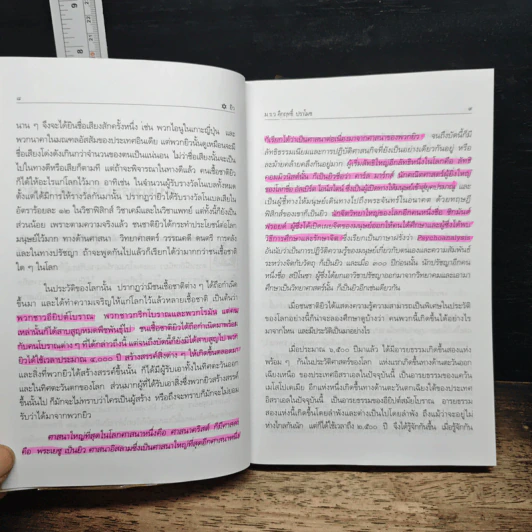 ๘ ✡ ยิว
นาน ๆ จึงจะได้ยินชื่อเสียงสักครั้งหนึ่ง เช่น พวกไอนุในเกาะญี่ปุ่น และ
พวกนาคาในมณฑลอัสสัมของประเทศอินเดีย แต่พวกยิวนั้นดูเหมือนจะมี
ชื่อเสียงโด่งดังเกินกว่าจำนวนของตนเป็นแน่นอน ไม่ว่าชื่อเสียงนั้นจะเป็น
ไปในทางดีหรือเสียก็ตามที แต่ถ้าจะพิจารณาในทางดีแล้ว คนเชื้อชาติยิว
ก็ได้ให้อะไรแก่โลกไว้มาก อาทิเช่น ในจำนวนผู้รับรางวัลโนเบลทั้งหมด
ตั้งแต่ได้มีการให้รางวัลกันมานั้น ปรากฏว่ายิวได้รับรางวัลโนเบลเสียใน
อัตราร้อยละ ๑๒ ในวิชาฟิสิกส์ วิชาเคมีและในวิชาแพทย์ แต่ทั้งนี้ก็ยังเป็น
ส่วนน้อย เพราะตามความจริงแล้ว ชนชาติยิวได้กระทำประโยชน์ต่อโลก
มนุษย์ไว้มาก ทางด้านศาสนา วิทยาศาสตร์ วรรณคดี ดนตรี การคลัง
และในทางปรัชญา ถ้าจะพูดกันไปแล้วก็เรียกได้ว่ามากกว่าชนเชื้อชาติ
ใด ๆ ในโลก
ในประวัติของโลกนั้น ปรากฏว่ามีชนเชื้อชาติต่าง ๆ ได้ถือกำเนิด
ขึ้นมา และได้ทำความเจริญให้แก่โลกไว้แล้วหลายเชื้อชาติ เป็นต้นว่า
พวกชาวอียิปต์โบราณ พวกชาวกรีกโบราณและพวกโรมัน แต่คน
เหล่านั้นก็ได้สาบสูญหมดพืชพันธุ์ไป ชนเชื้อชาติยิวได้ถือกำเนิดมาพร้อม
กับคนโบราณต่าง ๆ ที่ได้กล่าวถึงนี้ แต่จนถึงบัดนี้ก็ยังมิได้สาบสูญไป พวก
ยิวได้ใช้เวลาประมาณ ๔,๐๐๐ ปี สร้างสรรค์สิ่งต่าง ๆ ให้เกิดขึ้นตลอดมา
และสิ่งที่พวกยิวได้สร้างสรรค์ขึ้นนั้น ก็ได้มีผู้รับเอาทั้งในทิศตะวันออก
และในทิศตะวันตกของโลก ส่วนมากผู้ที่ได้รับเอาสิ่งซึ่งพวกยิวสร้างสรรค์
ขึ้นนั้นไป ก็มักจะไม่ทราบว่าใครเป็นผู้สร้าง หรือถึงจะทราบก็มักจะไม่ยอม
รับว่าได้มาจากพวกยิว
ศาสนาใหญ่ที่สุดในโลกศาสนาหนึ่งคือ ศาสนาคริสต์ ก็มีศาสดา
คือ พระเยซู เป็นยิว ศาสนาอิสลามซึ่งเป็นศาสนาใหญ่ที่สุดอีกศาสนาหนึ่ง
ม.ร.ว. คึกฤทธิ์ ปราโมช ๙
ก็เรียกได้ว่าเป็นศาสนาต่อเนื่องมาจากศาสนาของพวกยิว จนถึงบัดนี้ก็มี
ลัทธิธรรมเนียมและการปฏิบัติทางศาสนาที่ยังเป็นอย่างเดียวกันอยู่ หรือ
ละม้ายคล้ายคลึงกันอยู่มาก ผู้เริ่มลัทธิใหญ่อีกลัทธิหนึ่งในโลกคือ ลัทธิ
คอมมิวนิสต์นั้น ก็เป็นยิวชื่อว่า คาร์ล มาร์กซ์ นักคณิตศาสตร์ผู้ยิ่งใหญ่
ของโลกชื่อ อัลเบิร์ต ไอน์สไตน์ ซึ่งเป็นผู้เปิดทางให้มนุษย์เข้าสู่ยุคปรมาณู และ
เป็นผู้ชี้ทางให้มนุษย์เดินทางไปถึงพระจันทร์ในอนาคต ด้วยทฤษฎี
ฟิสิกส์ของเขาก็เป็นยิว นักจิตวิทยาใหญ่ของโลกอีกคนหนึ่งชื่อ ซิกมันด์
ฟรอยด์ ผู้ซึ่งได้เปิดเผยจิตของมนุษย์ออกให้คนได้ศึกษาและผู้ซึ่งได้พบ
วิธีการศึกษาและรักษาจิต ซึ่งเรียกเป็นภาษาฝรั่งว่า Psychoanalysis
อันเป็นวิชาที่ได้ปฏิวัติความรู้ของมนุษย์เกี่ยวกับตนเองและความสัมพันธ์
ระหว่างจิตกับวัตถุ ก็เป็นยิว และเมื่อ ๓๐๐ ปีก่อนนั้น นักปรัชญาอีกคน
หนึ่งชื่อ สปิโนซา ผู้ซึ่งได้แยกเอาวิชาปรัชญาออกมาจากวิทยาคมและเอามา
ศึกษาเป็นวิทยาศาสตร์นั้น ก็เป็นยิวอีกเช่นเดียวกัน
เมื่อชนชาติยิวได้แสดงความรู้ความสามารถเป็นพิเศษในประวัติ
ของโลกอย่างนี้ก็น่าจะลองศึกษาดูบ้างว่า คนพวกนี้เกิดขึ้นได้อย่างไร
มาจากไหน และมีประวัติเป็นมาอย่างไร
เมื่อประมาณ ๔,๕๐๐ ปีมาแล้ว ได้มีอารยธรรมเกิดขึ้นสองแห่ง
พร้อม ๆ กันในประวัติศาสตร์ของโลก แห่งแรกเกิดขึ้นทางด้านตะวันออก
เฉียงเหนือ ของประเทศอิสราเอลในปัจจุบันนี้ เป็นอารยธรรมของแคว้น
เมโสโปเตเมีย อีกแห่งหนึ่งเกิดขึ้นทางด้านตะวันตกเฉียงใต้ของประเทศ
อิสราเอลในปัจจุบันนี้ เป็นอารยธรรมของอียิปต์สมัยโบราณ อารยธรรม
สองแห่งนี้เกิดขึ้นโดยลำพังและต่างเป็นไปโดยลำพัง ถึงแม้ว่าจะอยู่ไม่
ห่างไกลกันนัก แต่ก็ได้ใช้เวลาถึง ๒,๕๐๐ ปี จึงได้รู้จักกันขึ้น เมื่อรู้จักกัน